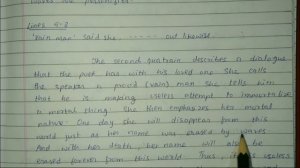 waves are personified.
Lines 5-8
'Vain man' said she, ...... out likewise.
The second quatrain describes a dialogue
that the poet has with his loved one. She calls
the speaker a proud (vain) man. She tells him
that he is making useless attempt to immortalize
a mortal thing. She then emphasizes her mortal
nature. One day she will disappear from this
world just as her name was erased by waves
And with her death, her name will also be
erased forever from this world. Thus, it is useless